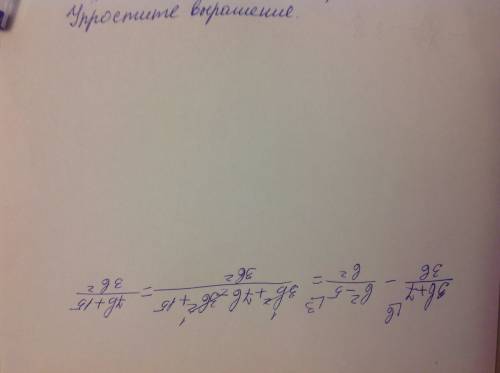 Упростите выражение.
(3b+7)/(3b) ⌊b − (b²−5)/b² ⌊3 = (3b²+7b−3b²+15)/(3b²) = (7b+15)/(3b²)